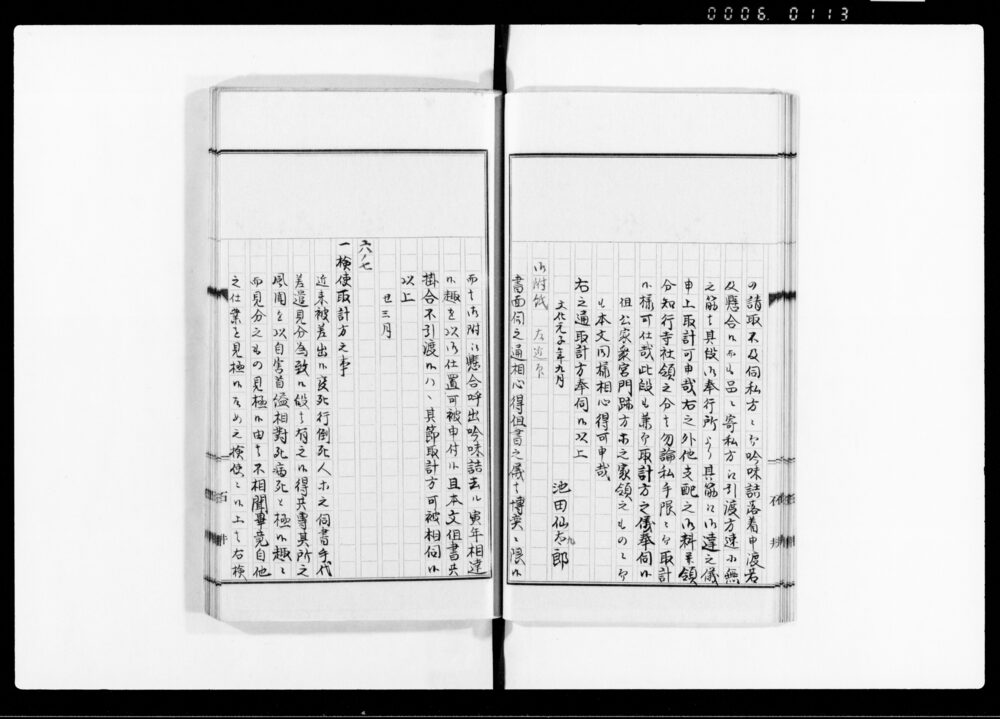 0006 0113
の請取不及伺私方ニ而吟味詰落着申渡若
及懸合候而も品ニ寄私方江引渡方速ニ無
之節者其段御奉行所より其筋江御達之儀
申上取計可申哉右之外他支配之御料私領
分知行寺社領之分者勿論私手限ニ而取計
候様可仕哉此段も兼而取計方之儀奉伺候
但公家衆宮門跡方等之家領之ものニ而
も本文同様相心得可申哉
右之通取計方奉伺候以上
文化元子年九月
池田仙九郎
御附紙
書面伺之通相心得但書之儀者博奕ニ限候
而者御附江懸合呼出吟味詰去ル寅年相達
候趣を以御仕置可被申付候且本文但書共
掛合不引渡候ハヽ其節取計方可被相伺候
以上
丑三月
六ノ七
一検使取計方之事
近来被差出候変死行倒死人等之伺書手代
差遣見分為致候段者有之候得共専其所之
風聞を以自害首縊相対死病死と極候趣ニ
而見分之もの見極候由者不相聞畢竟自他
之仕業を見極候ための検使ニ候上者右検